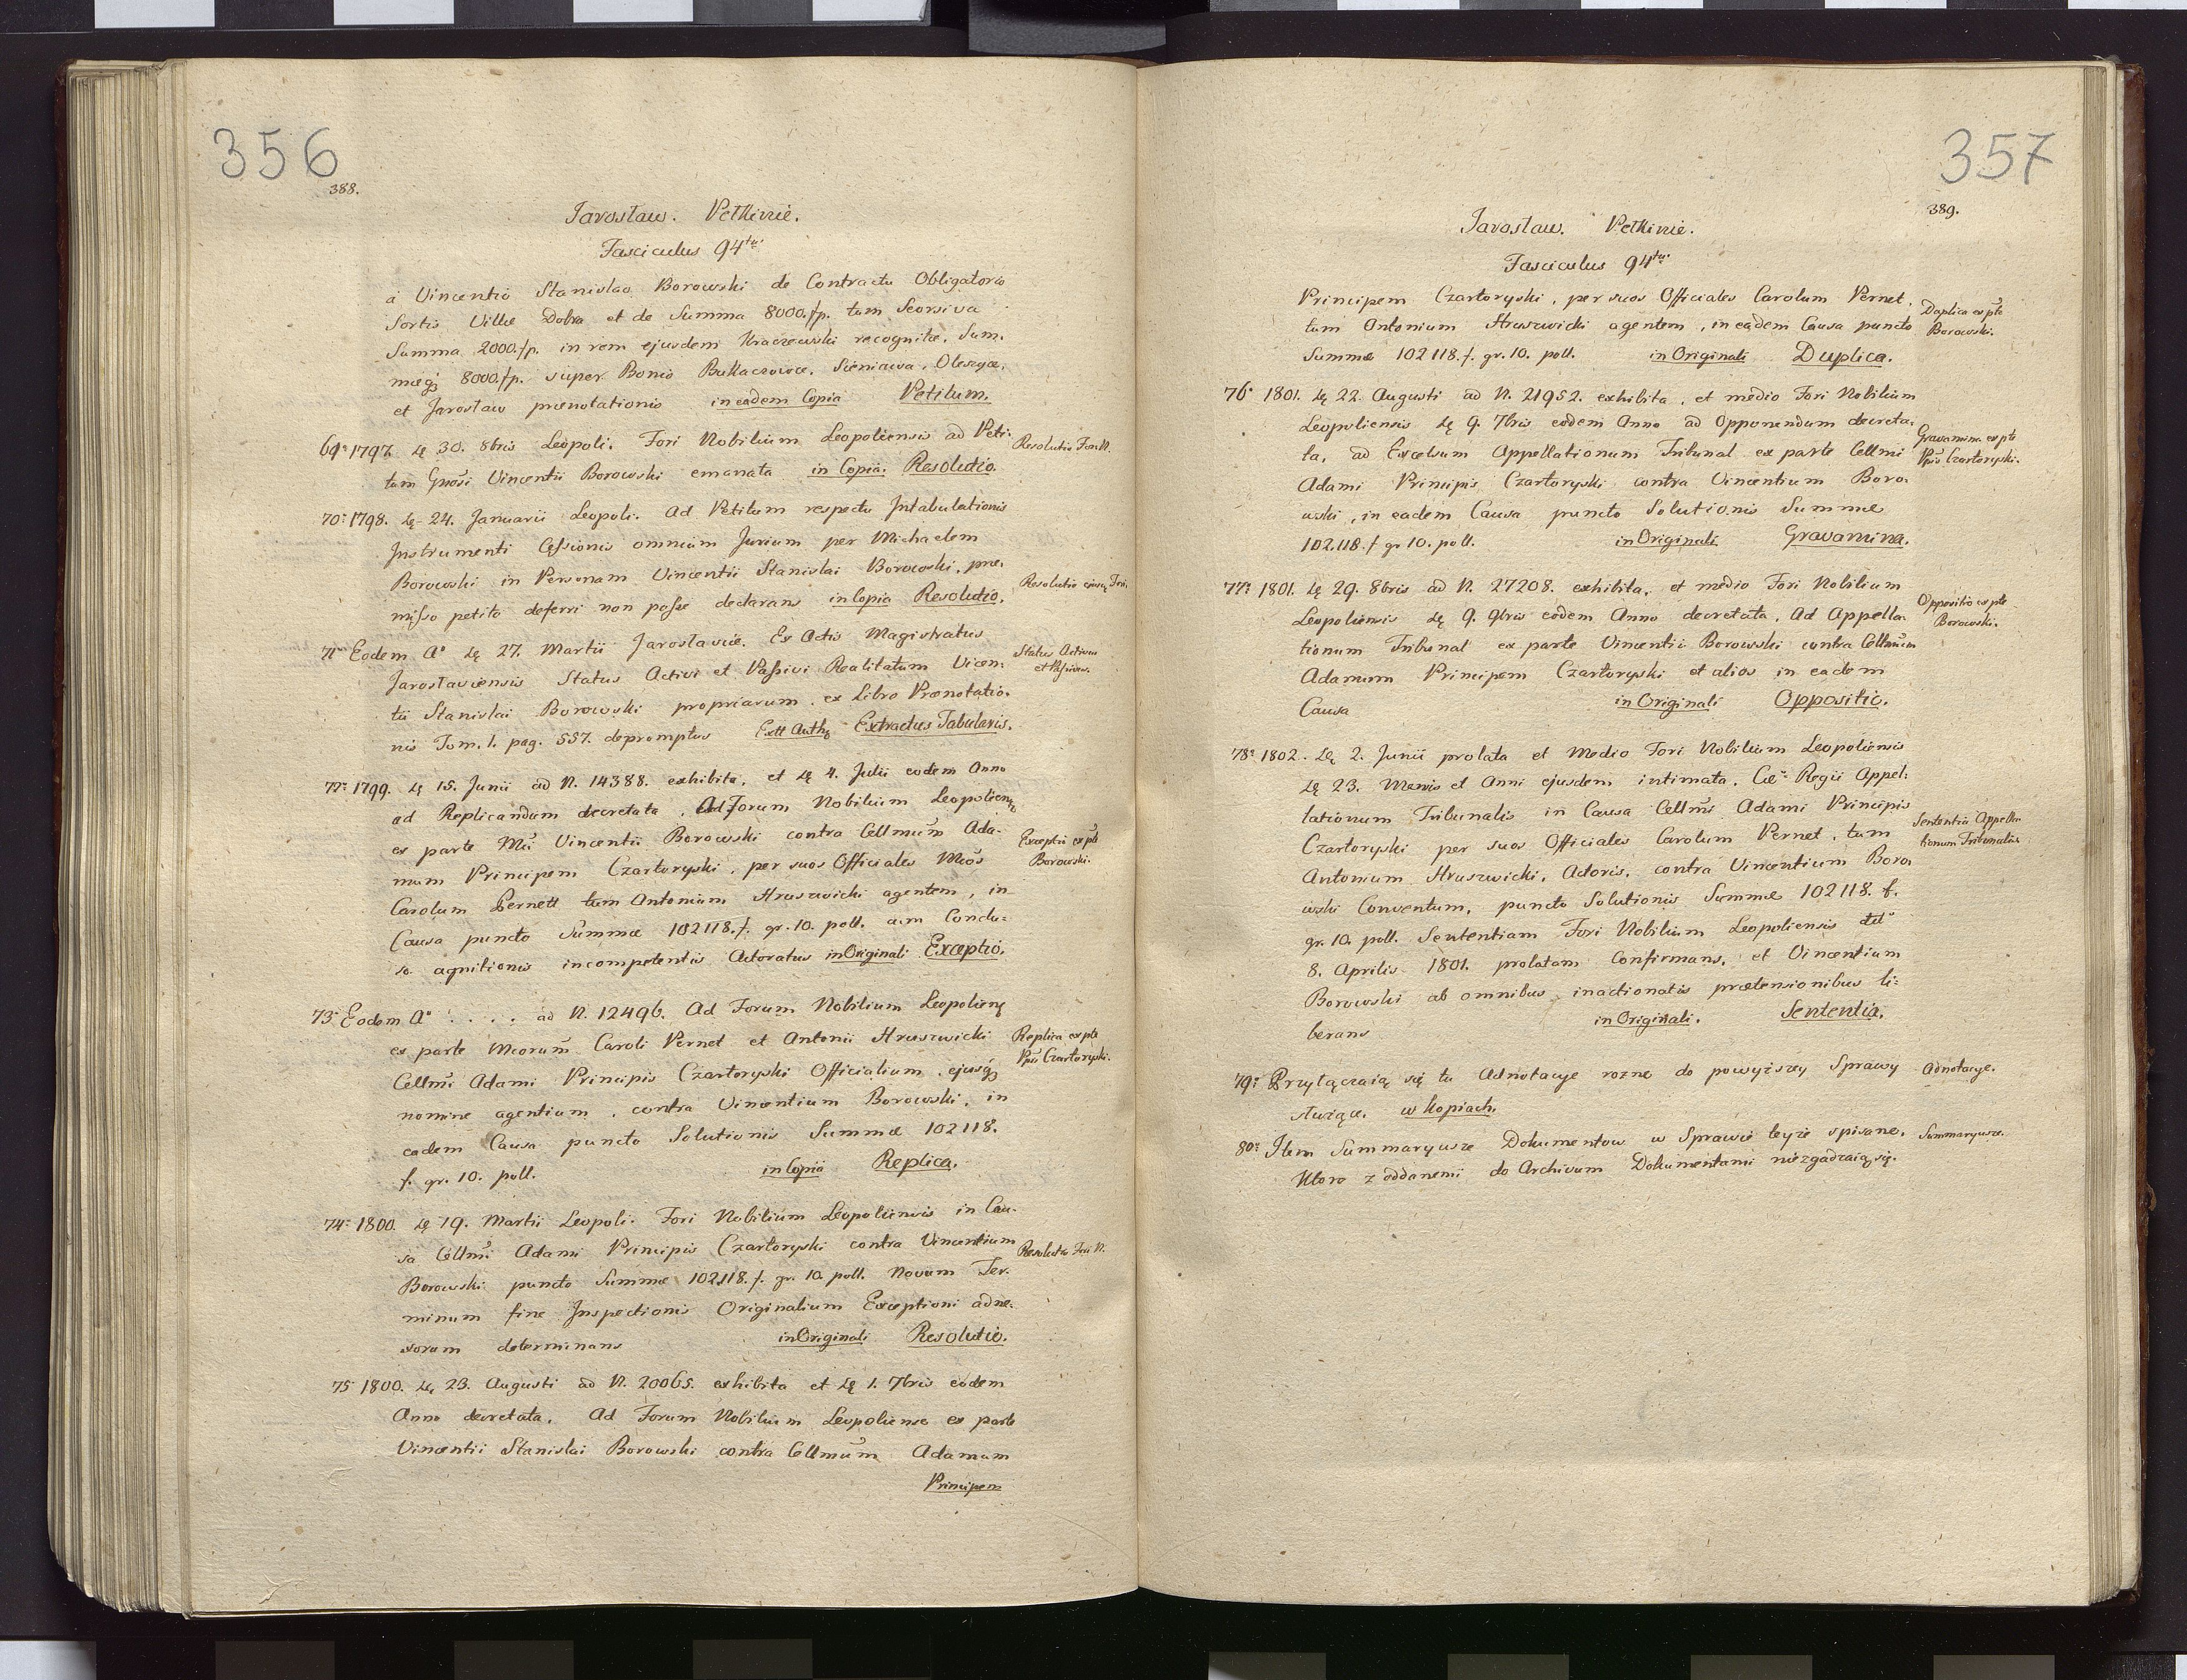 356
388.
Jarosław. Pełkinie.
Fasciculus 94tus
à Vincentio Stanislao Borowski de Contractu Obligatorio
Sortis Villæ Dobra et de Summa 8000.fp. tum Seorsiva
Summa 2000.fp. in rem ejusdem Kraczewski recognitæ, Sum-
mæq; 8000.fp. super Bonis Sieniawa, Oleszyce,
et Jarosław prænotationis in eadem Copia Petitum.
69° 1797. de 30. 8bris Leopoli. Fori Nobilium Leopoliensis ad Peti-
Resolutio Fori N.
tum Gnosi Vincentii Borowski emanata in Copia. Resolutio.
70° 1798. de 24. Januarii Leopoli. Ad Petitum respectu Intabulationis
Instrumenti Cessionis omnium Jurium per Michaelem
Borowski in Personam Vincentii Stanislai Borowski, præ-
Resolutio ejusdem Fori.
misso petito deferri non posse declarans in Copia Resolutio.
71° Eodem A° de 27. Martii Jaroslaviæ. Ex Actis Magistratus
Status Activus
et Passivus.
Jaroslaviensis Status Activi et Passivi Realitatum Vicen-
tii Stanislai Borowski propriarum, ex Libro Prænotatio-
nis Tom. 1. pag. 557. depromptus Extt Auth. Extractus Tabularis.
72° 1799. de 15. Junii ad N. 14388. exhibita, et de 4. Julii eodem Anno
ad Replicandum decretata, Ad Forum Nobilium Leopoliense
ex parte Mci Vincentii Borowski contra Cellmum Ada-
Exceptio ex pte
Borowski.
mum Principem Czartoryski, per suos Officiales Mcos
Carolum Pernett tum Antonium Hruszwicki agentem, in
Causa puncto Summæ 102118.f. gr. 10. poll. cum Conclu-
so agnitionis incompetentis Actoratus in Originali Exceptio.
73° Eodem A° . . . . ad N. 12496. Ad Forum Nobilium Leopoliense
ex parte Mcorum Caroli Pernet et Antonii Hruszwicki
Replica ex pte
Ppis Czartoryski.
Cellmi Adami Principis Czartoryski Officialium, ejusq;
nomine agentium, contra Vincentium Borowski, in
eadem Causa puncto Solutionis Summæ 102118.
f. gr. 10. poll. in Copia Replica.
74° 1800. de 19. Martii Leopoli. Fori Nobilium Leopoliensis in Cau-
sa Cellmi Adami Principis Czartoryski contra Vincentium
Resolutio Fori N.
Borowski puncto Summæ 102118.f. gr. 10. poll. Novum Ter-
minum fine Inspectionis Originalium Exceptioni adne-
xorum determinans in Originali Resolutio.
75° 1800. de 23. Augusti ad N. 20065. exhibita et de 1. 7bris eodem
Anno decretata. Ad Forum Nobilium Leopoliense ex parte
Vincentii Stanislai Borowski contra Cellmum Adamum
Principem
357
389.
Jarosław. Pełkinie.
Fasciculus 94tus
Principem Czartoryski, per suos Officiales Carolum Pernet,
Duplica ex pte
Borowski.
tum Antonium Hruszwicki agentem, in eadem Causa puncto
Summæ 102118.f. gr. 10. poll. in Originali Duplica.
76° 1801. de 22. Augusti ad N. 21952. exhibita, et medio Fori Nobilium
Leopoliensis de 9. 7bris eodem Anno ad Opponendum decreta-
Gravamina ex pte
Ppis Czartoryski.
ta, ad Excelsum Appellationum Tribunal ex parte Cellmi
Adami Principis Czartoryski contra Vincentium Boro-
wski, in eadem Causa puncto Solutionis Summæ
102.118.f gr 10. poll. in Originali Gravamina.
77° 1801. de 29. 8bris ad N. 27208. exhibita, et medio Fori Nobilium
Leopoliensis de 9. 9bris eodem Anno decretata, Ad Appella-
Oppositio ex pte
Borowski.
tionum Tribunal ex parte Vincentii Borowski contra Cellmum
Adamum Principem Czartoryski et alios in eadem
Causa in Originali Oppositio.
78° 1802. de 2. Junii prolata et Medio Fori Nobilium Leopoliensis
de 23. Mensis et Anni ejusdem intimata, Cæs. Regii Appel-
lationum Tribunalis in Causa Cellmi Adami Principis
Sententia Appella-
tionum Tribunalis.
Czartoryski per suos Officiales Carolum Pernet, tum
Antonium Hruszwicki, Actoris, contra Vincentium Boro-
wski Conventum, puncto Solutionis Summæ 102118. f.
gr. 10. poll. Sententiam Fori Nobilium Leopoliensis ddto
8. Aprilis 1801. prolatam Confirmans, et Vincentium
Borowski ab omnibus inactionatis prætensionibus li-
berans in Originali. Sententia.
79° Przyłączaią się tu Adnotacye rozne do powyższey Sprawy
Adnotacye.
służące. w kopiach.
80° Item Summaryusze Dokumentow w Sprawie teyże spisane,
Summaryusze.
ktore z oddanemi do Archivum Dokumentami niezgadzaią się.